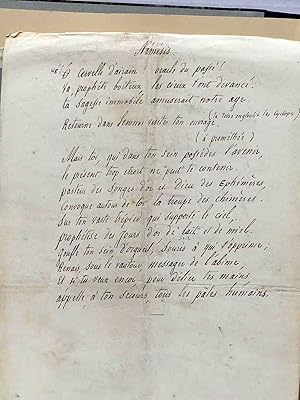 Némésis
O Cervelle d'airain ! oracle du passé !
Va, prophète boiteux, les tiens t'ont devancé.
ta sagesse immobile amuserait notre age.
Retourne dans Lemnos visiter ton ouvrage
(la terre engloutit les Cyclopes)
(à prométhée)
Mais toi, qui dans ton sein possèdes l'avenir,
le présent trop étroit ne peut te contenir.
pasteur des songes d'or et Dieu des Ephémères,
Convoque autour de toi la troupe des chimères.
Sur ton vaste trépied qui supporte le ciel,
prophétise des jours d'or de lait et de miel.
Gonfle ton sein d'orgueil, souris à qui t'opprime ;
Renais, sous le vautour, messager de l'abîme,
et si tu veux encor pour délier tes mains
appelle à ton secours tous les pâles humains.